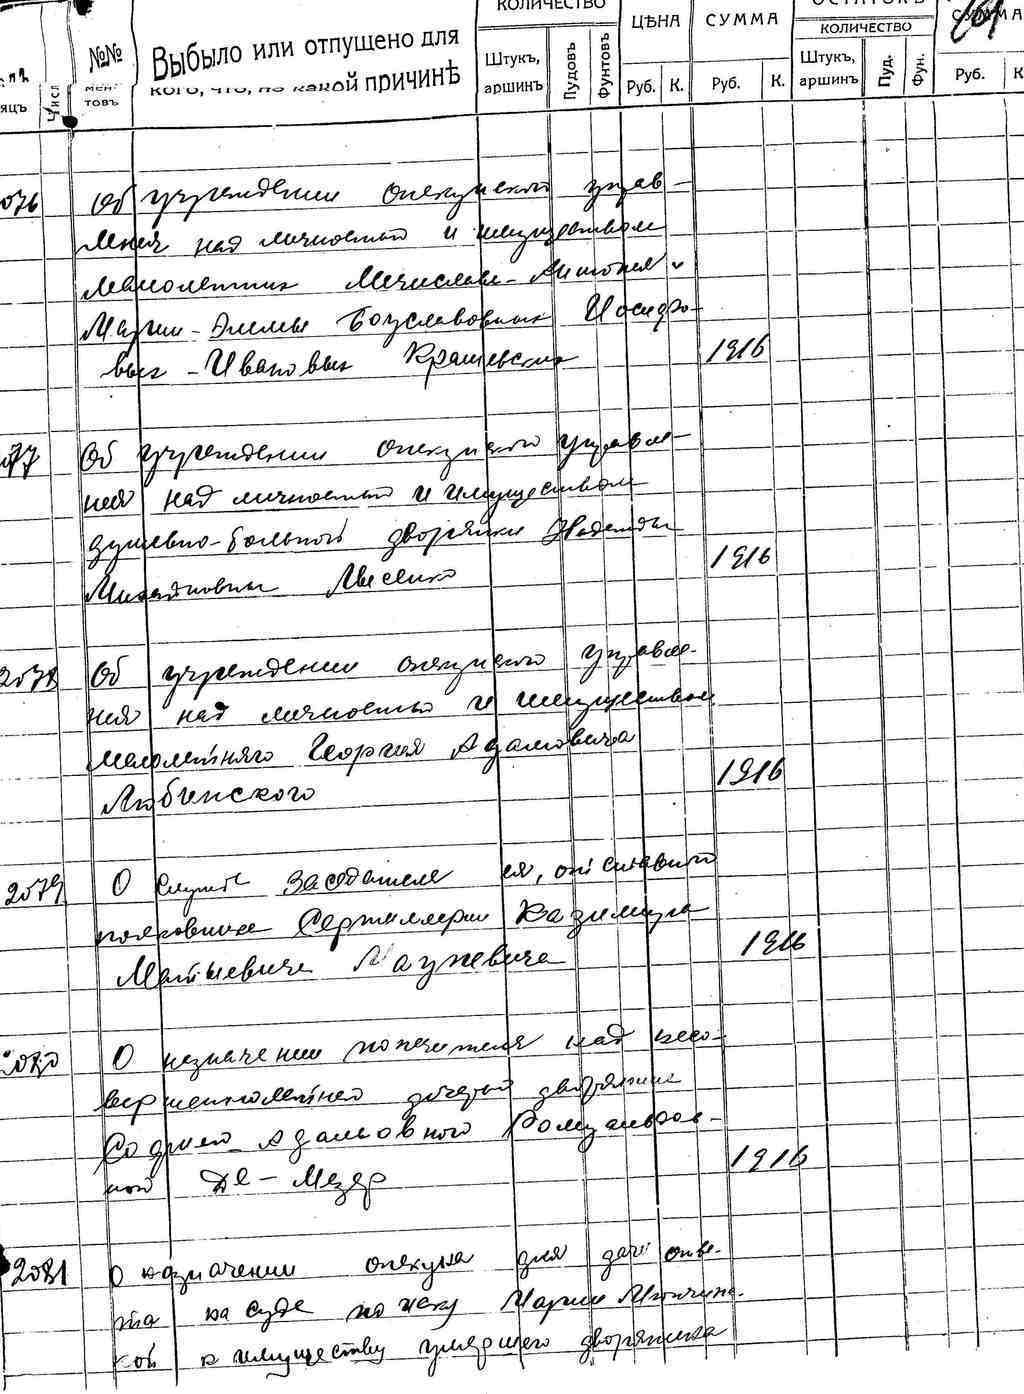 КОЛИЧЕСТВО ЦѢНА СУММА ОСТАТОКЪ СУММА
№№ Выбыло или отпущено для кого, что, по какой причинѣ
КОЛИЧЕСТВО
Штукъ, аршинъ Пудовъ Фунтовъ Руб. К. Руб. К. Штукъ, аршинъ Пуд. Фун. Руб. К
яцъ Числ мен- товъ
076 Об учреждении опекунского управ-
ления над личностью и имуществом
малолетних Мечислава-Антония и
Марии-Элены Богуславовых Иосифо-
вых-Ивановых Крашевских 1916
077 Об учреждении опекунского управле-
ния над личностью и имуществом
душевно-больной дворянки Надежды
Михайловны Лысенко 1916
2078 Об учреждении опекунского управле-
ния над личностью и имуществом
малолетняго Георгия Адамовича
Любинского 1916
2079 О службе Заседателя ея, отставного
полковника Артиллерии Казимира
Матвеевича 1916
2080 О назначении попечителя над несо-
вершеннолетней дочерью дворянина
Софиею Адамовною Ромуальдов-
ной Де-Мезер 1916
2081 О назначении опекуна для дачи отве-
та на суде по иску Марии
кой к имуществу умершего дворянина